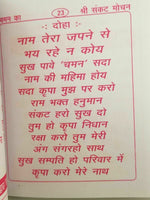 चमन का
23
श्री संकट मोचन
: दोहा :
नाम तेरा जपने से
भय रहे न कोय
सुख पावे 'चमन' सदा
नाम की महिमा होय
सदा कृपा मुझ पर करो
राम भक्त हनुमान
संकट हरो सदा दो
तुम हो कृपा निधान
रक्षा करो तुम मेरी
अंग संगरहो साथ
सुख सम्पति हो परिवार में
कृपा करो मेरे नाथ